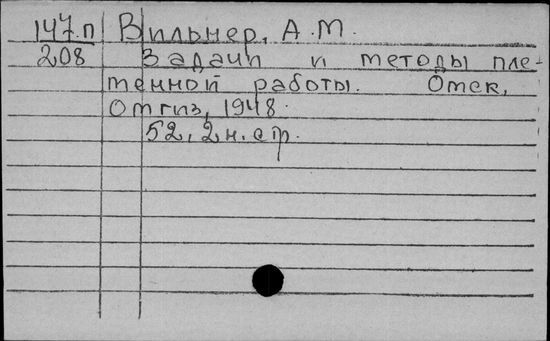 147.П Вильнер, А.М.
208 Задачи и методы пле-
менной работы. Омск,
Омгиз, 1948.
52, 2 н. стр.